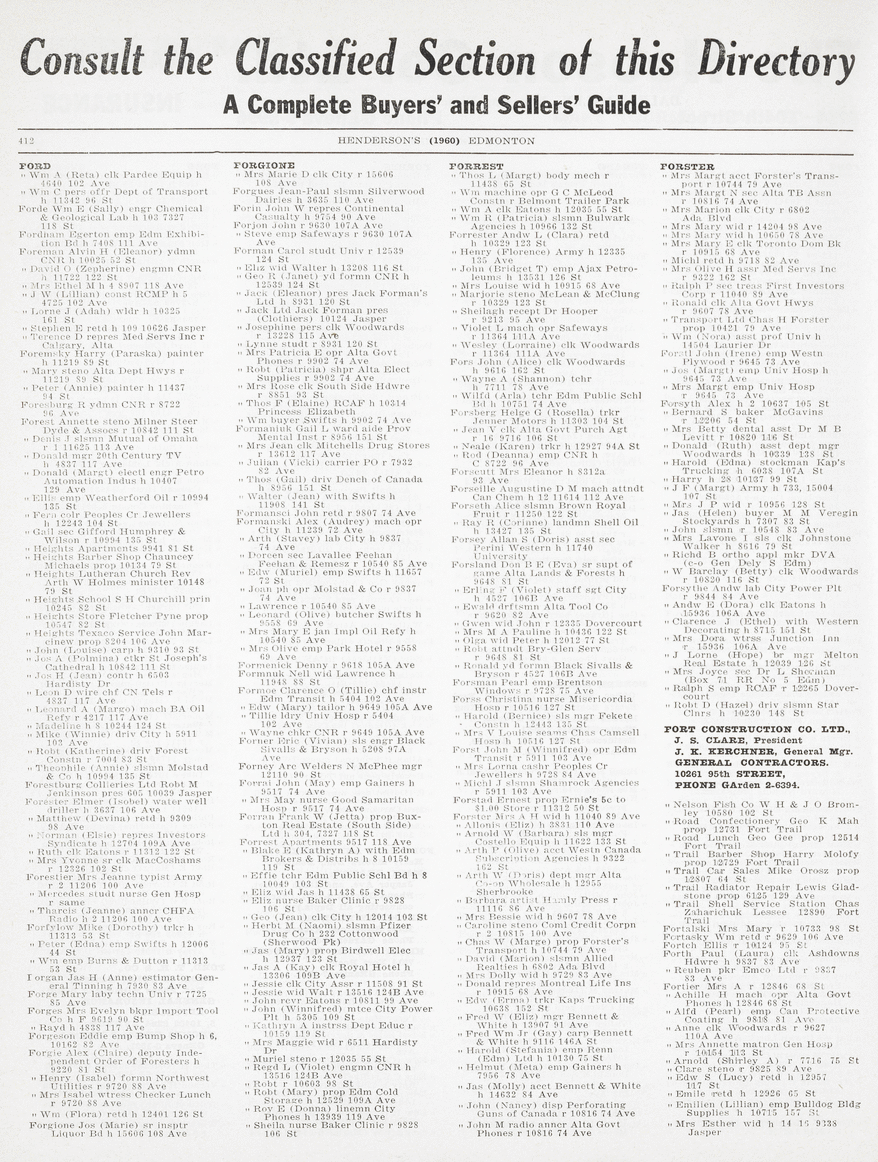 Consult the Classified Section of this Directory
A Complete Buyers' and Sellers' Guide
412
HENDERSON'S (1960) EDMONTON
FORD
" Wm A (Reta) clk Pardee Equip h
4640 102 Ave
" Wm C pers offr Dept of Transport
h 11342 96 St
Forde Wm E (Sally) engr Chemical
& Geological Lab h 103 7327
118 St
Fordham Egerton emp Edm Exhibi-
tion Bd h 7408 111 Ave
Foreman Alvin H (Eleanor) ydmn
CNR h 10025 52 St
" David O (Zepherine) engmn CNR
h 11722 122 St
" Mrs Ethel M h 4 8907 118 Ave
" J W (Lillian) const RCMP h 5
4725 102 Ave
" Lorne J (Adah) wldr h 10325
161 St
" Stephen E retd h 109 10626 Jasper
" Terence D repres Med Servs Inc r
Calgary, Alta
Foremsky Harry (Paraska) painter
h 11219 89 St
" Mary steno Alta Dept Hwys r
11219 89 St
" Peter (Annie) painter h 11437
94 St
Foresburg R ydmn CNR r 8722
96 Ave
Forest Annette steno Milner Steer
Dyde & Assocs r 10842 111 St
" Denis J slsmn Mutual of Omaha
r 1 11625 113 Ave
" Donald mgr 20th Century TV
h 4837 117 Ave
" Donald (Margt) electl engr Petro
Automation Indus h 10407
129 Ave
" Ellis emp Weatherford Oil r 10994
135 St
" Fern colr Peoples Cr Jewellers
h 12243 104 St
" Gail sec Gifford Humphrey &
Wilson r 10994 135 St
" Heights Apartments 9941 81 St
" Heights Barber Shop Chauncey
Michaels prop 10134 79 St
" Heights Lutheran Church Rev
Arth W Holmes minister 10148
79 St
" Heights School S H Churchill prin
10245 82 St
" Heights Store Fletcher Pyne prop
10547 82 St
" Heights Texaco Service John Mar-
cinew prop 8204 106 Ave
" John (Louise) carp h 9310 93 St
" Jos A (Polmina) ctkr St Joseph's
Cathedral h 10842 111 St
" Jos H (Jean) contr h 6503
Hardisty Dr
" Leon D wire chf CN Tels r
4837 117 Ave
" Leonard A (Margo) mach BA Oil
Refy r 4217 117 Ave
" Madeline h 8 10244 124 St
" Mike (Winnie) driv City h 5911
103 Ave
" Robt (Katherine) driv Forest
Constn r 7004 83 St
" Theophile (Annie) slsmn Molstad
& Co h 10994 135 St
Forestburg Collieries Ltd Robt M
Jenkinson pres 605 10039 Jasper
Forester Elmer (Isobel) water well
driller h 3637 106 Ave
" Matthew (Devina) retd h 9309
98 Ave
" Norman (Elsie) repres Investors
Syndicate h 12704 109A Ave
" Ruth clk Eatons r 11312 122 St
" Mrs Yvonne sr clk MacCoshams
r 12326 102 St
Forestier Mrs Jeanne typist Army
r 2 11206 100 Ave
" Mercedes studt nurse Gen Hosp
r same
" Tharcis (Jeanne) anncr CHFA
Radio h 2 11206 100 Ave
Forfylow Mike (Dorothy) trkr h
11313 53 St
" Peter (Edna) emp Swifts h 12006
44 St
" Wm emp Burns & Dutton r 11313
53 St
Forgan Jas H (Anne) estimator Gen-
eral Tinning h 7930 83 Ave
Forge Mary laby techn Univ r 7725
85 Ave
Forges Mrs Evelyn bkpr Import Tool
Co h F 9619 90 St
" Rayd h 4838 117 Ave
Forgeson Eddie emp Bump Shop h 6,
10162 82 Ave
Forgie Alex (Claire) deputy Inde-
pendent Order of Foresters h
9220 81 St
" Henry (Isabel) formn Northwest
Utilities r 9720 88 Ave
" Mrs Isabel wtress Checker Lunch
r 9720 88 Ave
" Wm (Flora) retd h 12401 126 St
Forgione Jos (Marie) sr insptr
Liquor Bd h 15606 108 Ave
FORGIONE
" Mrs Marie D clk City r 15606
108 Ave
Forgues Jean-Paul slsmn Silverwood
Dairies h 3635 110 Ave
Forin John W repres Continental
Casualty h 9754 90 Ave
Forjon John r 9630 107A Ave
" Steve emp Safeways r 9630 107A
Ave
Forman Carol studt Univ r 12539
124 St
" Eliz wid Walter h 13208 116 St
" Geo R (Janet) yd formn CNR h
12539 124 St
" Jack (Eleanor) pres Jack Forman's
Ltd h 8931 120 St
" Jack Ltd Jack Forman pres
(Clothiers) 10124 Jasper
" Josephine pers clk Woodwards
r 13228 115 Ave
" Lynne studt r 8931 120 St
" Mrs Patricia E opr Alta Govt
Phones r 9902 74 Ave
" Robt (Patricia) shpr Alta Elect
Supplies r 9902 74 Ave
" Mrs Rose clk South Side Hdwre
r 8851 93 St
" Thos F (Elaine) RCAF h 10314
Princess Elizabeth
" Wm buyer Swifts h 9902 74 Ave
Formaniuk Gail L ward aide Prov
Mental Inst r 8956 151 St
" Mrs Jean clk Mitchells Drug Stores
r 13612 117 Ave
" Julian (Vicki) carrier PO r 7932
82 Ave
" Thos (Gail) driv Dench of Canada
h 8956 151 St
" Walter (Jean) with Swifts h
11908 141 St
Formansci John retd r 9807 74 Ave
Formanski Alex (Audrey) mach opr
City h 11239 72 Ave
" Arth (Stavey) lab City h 9837
74 Ave
" Doreen sec Lavallee Feehan
Feehan & Remesz r 10540 85 Ave
" Edw (Muriel) emp Swifts h 11657
72 St
" Joan ph opr Molstad & Co r 9837
74 Ave
" Lawrence r 10540 85 Ave
" Leonard (Olive) butcher Swifts h
9558 69 Ave
" Mrs Mary E jan Impl Oil Refy h
10540 85 Ave
" Mrs Olive emp Park Hotel r 9558
69 Ave
Formenick Denny r 9618 105A Ave
Formnuk Nell wid Lawrence h
11948 88 St
Formoe Clarence O (Tillie) chf instr
Edm Transit h 5404 102 Ave
" Edw (Mary) tailor h 9649 105A Ave
" Tillie ldry Univ Hosp r 5404
102 Ave
" Wayne chkr CNR r 9649 105A Ave
Forner Eric (Vivian) sls engr Black
Sivalls & Bryson h 5208 97A
Ave
Forney Arc Welders N McPhee mgr
12119 90 St
Forrai John (May) emp Gainers h
9517 74 Ave
" Mrs May nurse Good Samaritan
Hosp r 9517 74 Ave
Forran Frank W (Jetta) prop Bux-
ton Real Estate (South Side)
Ltd h 304, 7327 118 St
Forrest Apartments 9517 118 Ave
" Blake E (Kathryn A) with Edm
Brokers & Distribs h 8 10159
119 St
" Effie chtr Edm Public Schl Bd h 8
10049 103 St
" Eliz wid Jas h 11438 65 St
" Eliz nurse Baker Clinic r 9828
106 St
" Geo (Jean) clk City h 12014 103 St
" Herbt M (Naomi) slsmn Pfizer
Drug Co h 232 Cottonwood
(Sherwood Pk)
" Jas (Mary) prop Birdwell Elec
h 12937 123 St
" Jas A (Kay) clk Royal Hotel h
13306 109B Ave
" Jessie clk City Assr r 11508 91 St
" Jessie wid Walt r 13516 124B Ave
" John rcvr Eatons r 10811 99 Ave
" John (Winnifred) mtce City Power
Plt h 5305 109 St
" Kathryn A instrss Dept Educ r
10159 119 St
" Mrs Maggie wid r 6511 Hardisty
Dr
" Muriel steno r 12035 55 St
" Regd L (Violet) engmn CNR h
13516 124B Ave
" Robt r 10603 98 St
" Robt (Mary) prop Edm Cold
Storage h 12529 109A Ave
" Roy E (Donna) linemn City
Phones h 13939 119 Ave
" Sheila nurse Baker Clinic r 9828
106 St
FORREST
" Thos L (Margt) body mech r
11438 65 St
" Wm machine opr G C McLeod
Constn r Belmont Trailer Park
" Wm A clk Eatons h 12035 55 St
" Wm R (Patricia) slsmn Bulwark
Agencies h 10966 132 St
Forrester Andw L (Clara) retd
h 10329 123 St
" Henry (Florence) Army h 12335
135 Ave
" John (Bridget T) emp Ajax Petro-
leums h 13531 126 St
" Mrs Louise wid h 10915 68 Ave
" Marjorie steno McLean & McClung
r 10329 123 St
" Sheilagh recept Dr Hooper
r 9213 95 Ave
" Violet L mach opr Safeways
r 11364 111A Ave
" Wesley (Lorraine) clk Woodwards
r 11364 111A Ave
Fors John (Alice) clk Woodwards
h 9616 162 St
" Wayne A (Shannon) tchr
h 7711 78 Ave
" Wilfd (Arla) tchr Edm Public Schl
Bd h 10751 74 Ave
Forsberg Helge G (Rosella) trkr
Jenner Motors h 11303 104 St
" Jean V clk Alta Govt Purch Agt
r 16 9716 106 St
" Neale (Karen) trkr h 12927 94A St
" Rod (Deanna) emp CNR h
C 8722 96 Av
Forscutt Mrs Eleanor h 8312a
93 Ave
Forseille Augustine D M mach attndt
Can Chem h 12 11614 112 Ave
Forseth Alice slsmn Brown Royal
Fruit r 11250 122 St
" Ray R (Corinne) landmn Shell Oil
h 13427 135 St
Forsey Allan S (Doris) asst sec
Perini Western h 11740
University
Forsland Don B E (Eva) sr supt of
game Alta Lands & Forests h
9648 81 St
" Erling F (Violet) staff sgt City
h 4527 106B Av
" Ewald drftsmn Alta Tool Co
r 9620 82 Ave
" Gwen wid John r 12335 Dovercourt
" Mrs M A Pauline h 10436 122 St
" Olga wid Peter h 12012 77 St
" Robt attndt Bry-Glen Serv
r 9648 81 St
" Ronald yd formn Black Sivalls &
Bryson r 4527 106B Av
Forsman Pearl emp Brentson
Windows r 9728 75 Ave
Forss Christina nurse Misericordia
Hosp r 10516 127 St
" Harold (Bernice) sls mgr Fekete
Constn h 12443 135 St
" Mrs V Louise seams Chas Camsell
Hosp h 10516 127 St
Forst John M (Winnifred) opr Edm
Transit r 5911 103 Ave
" Mrs Lorna cashr Peoples Cr
Jewellers h 9728 84 Ave
" Michl J slsmn Shamrock Agencies
r 5911 103 Ave
Forstad Ernest prop Ernie's 5c to
$1.00 Store r 11312 50 St
Forster Mrs A H wid h 11040 89 Ave
" Allonis (Eliz) h 3831 110 Ave
" Arnold W (Barbara) sls mgr
Costello Equip h 11622 133 St
" Arth P (Olive) acct Westn Canada
Subscription Agencies h 9322
162 St
" Arth W (Doris) dept mgr Alta
Co-op Wholesale h 12955
Sherbrooke
" Barbara artist Hamly Press r
11116 86 Ave
" Mrs Bessie wid h 9607 78 Ave
" Caroline steno Coml Credit Corpn
r 2 10815 100 Ave
" Chas W (Marge) prop Forster's
Transport h 10744 79 Ave
" David (Marion) slsmn Allied
Realties h 6802 Ada Blvd
" Mrs Dolly wid h 9729 83 Ave
" Donald repres Montreal Life Ins
r 10915 68 Ave
" Edw (Erma) trkr Kaps Trucking
10638 152 St
" Fred W (Eliz) mgr Bennett &
White h 13907 91 Ave
" Fred Wm Jr (Gay) carp Bennett
& White h 9116 146A St
" Harold (Stefania) emp Renn
(Edm) Ltd h 10130 75 St
" Helmut (Meta) emp Gainers h
7956 78 Ave
" Jas (Molly) acct Bennett & White
h 14632 84 Av
" John (Nancy) disp Perforating
Guns of Canada r 10816 74 Ave
" John M radio anncr Alta Govt
Phones r 10816 74 Ave
FORSTER
" Mrs Margt acct Forster's Trans-
port r 10744 79 Ave
" Mrs Margt N sec Alta TB Assn
r 10816 74 Ave
" Mrs Marion clk City r 6802
Ada Blvd
" Mrs Mary wid r 14204 98 Ave
" Mrs Mary wid h 10650 78 Ave
" Mrs Mary E clk Toronto Dom Bk
r 10915 68 Ave
" Michl retd h 9718 82 Ave
" Mrs Olive H assr Med Servs Inc
r 9322 162 St
" Ralph P sec treas First Investors
Corp r 11040 89 Ave
" Ronald clk Alta Govt Hwys
r 9607 78 Ave
" Transport Ltd Chas H Forster
prop 10421 79 Ave
" Wm (Nora) asst prof Univ h
14504 Laurier Dr
Forstl John (Irene) emp Westn
Plywood r 9645 73 Ave
" Jos (Margt) emp Univ Hosp h
9645 73 Ave
" Mrs Margt emp Univ Hosp
r 9645 73 Ave
Forsyth Alex h 2 10637 105 St
" Bernard S baker McGavins
r 12206 54 St
" Mrs Betty dental asst Dr M B
Levitt r 10820 116 St
" Donald (Ruth) asst dept mgr
Woodwards h 10339 138 St
" Harold (Edna) stockman Kap's
Trucking h 6038 107A St
" Harry h 28 10137 99 St
" J F (Margt) Army h 733, 15004
107 St
" Mrs J P wid r 10956 128 St
" Jas (Helen) buyer M M Veregin
Stockyards h 7307 83 St
" John slsmn r 10548 83 Ave
" Mrs Lavone I sls clk Johnstone
Walker h 8616 79 St
" Richd B ortho appl mkr DVA
(c-o Gen Dely S Edm)
" W Barclay (Betty) clk Woodwards
r 10820 116 St
Forsythe Andw lab City Power Plt
r 9844 84 Ave
" Andw E (Dora) clk Eatons h
15936 106A Ave
" Clarence J (Ethel) with Western
Decorating h 8715 151 St
" Mrs Dora wtrss Junction Inn
r 15936 106A Ave
" J Lorne (Hope) br mgr Melton
Real Estate h 12039 126 St
" Mrs Joyce sec Dr L Shevnan
(Box 71 RR No 5 Edm)
" Ralph S emp RCAF r 12265 Dover-
court
" Robt D (Hazel) driv slsmn Star
Clnrs h 10230 148 St
FORT CONSTRUCTION CO. LTD.,
J. S. CLARE, President
J. K. KERCHER, General Mgr.
GENERAL CONTRACTORS.
10261 95th STREET,
PHONE GArden 2-6394.
" Nelson Fish Co W H & J O Brom-
ley 10580 102 St
" Road Confectionery Geo K Mah
prop 12731 Fort Trail
" Road Lunch Geo Gee prop 12514
Fort Trail
" Trail Barber Shop Harry Molofy
prop 12729 Fort Trail
" Trail Car Sales Mike Orosz prop
12807 64 St
" Trail Radiator Repair Lewis Glad-
stone prop 6125 129 Ave
" Trail Shell Service Station Chas
Zaharichuk Lessee 12890 Fort
Trail
Fortalski Mrs Mary r 10733 98 St
Fortasky Wm retd r 9629 106 Ave
Fortch Ellis r 10124 95 St
Forth Paul (Laura) clk Ashdowns
Hdwre h 9837 83 Ave
" Reuben pkr Emco Ltd r 9837
83 Ave
Fortier Mrs A r 12846 68 St
" Achille H mach opr Alta Govt
Phones h 12846 68 St
" Alfd (Pearl) emp Can Protective
Coating h 9848 81 Ave
" Anne clk Woodwards r 9627
110A Ave
" Mrs Annette matron Gen Hosp
r 10154 113 St
" Arnold (Shirley A) r 7716 75 St
" Clare steno r 9825 89 Ave
" Edw S (Lucy) retd h 12957
117 St
" Emile retd h 12926 65 St
" Emilien (Lillian) emp Bulldog Bldg
Supplies h 10715 157 St
" Mrs Esther wid h 14
Jasper